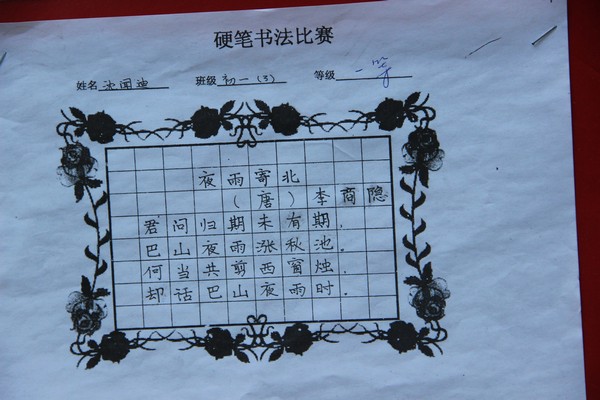 硬笔书法比赛
姓名 沈闻迪 班级 初一(3) 等级 一等
夜雨寄北
(唐)李商隐
君问归期未有期.
巴山夜雨涨秋池.
何当共剪西窗烛.
却话巴山夜雨时.